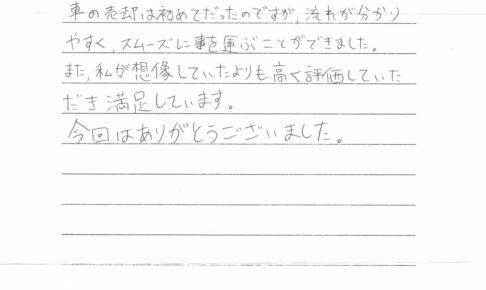 車の売却は初めてだったのですが、流れが分かり
やすく、スムーズに事を運ぶことができました。
また、私が想像していたよりも高く評価していた
だき満足しています。
今回はありがとうございました。